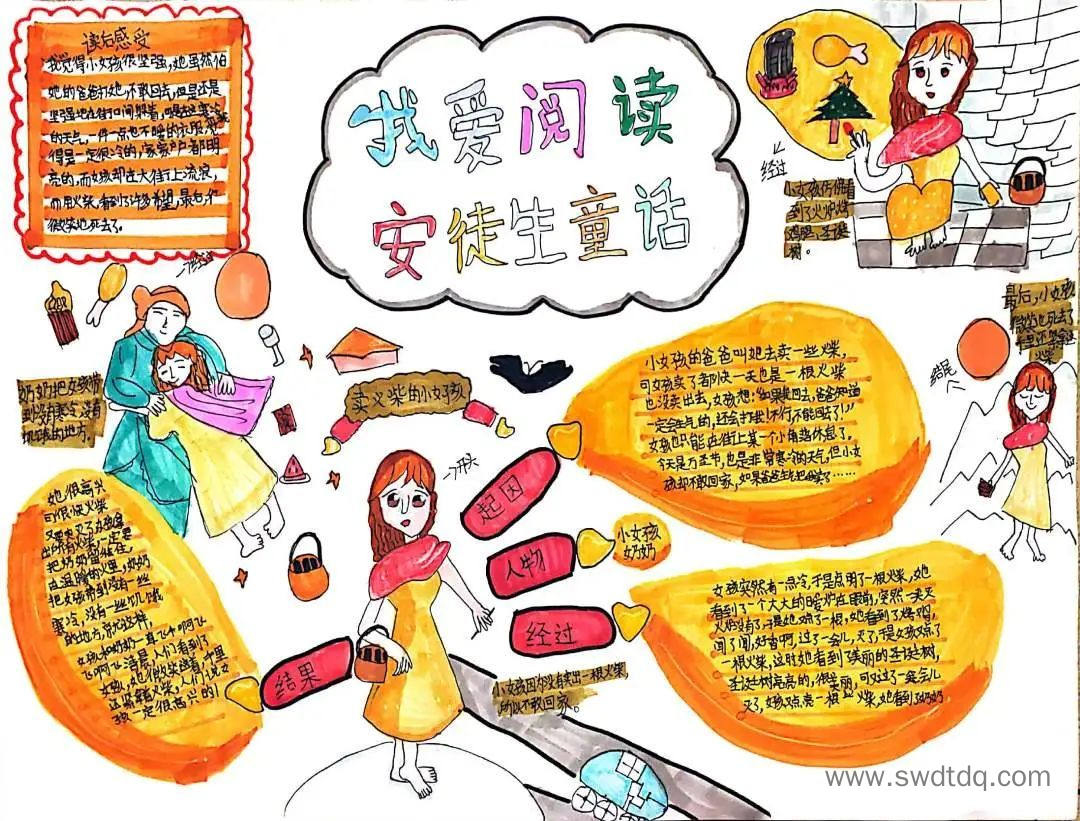 我爱阅读
安徒生童话
读后感受
我觉得小女孩很坚强,她虽然怕
她的爸爸打她,不敢回去,但是还是
坚强地在街口间躲着,
的天气,一件一点也不暖的衣服,
得是一定很冷的,家家户户都明
亮的,而女孩却在大街上流浪,
而用火柴,看到了许多希望,最后才
微笑地死去了。
经过
小女孩仿佛看
到了火炉烤
鸡腿,圣诞
树。
最后,小女孩
微笑地死去了
火柴
结尾
奶奶把女孩带
到没有寒冷没有
饥饿的地方。
卖火柴的小女孩
开头
起因
小女孩的爸爸叫她去卖一些火柴,
可女孩卖了者阝快一天也是一根火柴
也没卖出去,女孩想:“如果我回去,爸爸知道
一定会生气的,还会打我!不行,不能回去了!”
女孩也只能在街上某一个小角落休息了。
今天是万圣节,也是非常寒冷的天气,但小女
孩却不敢回家,如果爸爸生气把她卖了……
人物
小女孩
奶奶
经过
女孩突然有一点冷,于是点明了一根火柴,她
看到了一个大大的暖炉在眼前,突然一天灭
火炉没有了,于是她点了一根,她看到了烤鸡,
闻了闻,好香啊,过了一会儿,灭了,于是女孩又点了
一根火柴,这时她看到了美丽的圣诞树,
圣诞树亮亮的,很美丽,可又过了一会儿
灭了,女孩又点亮一根火柴,她看到奶奶
小女孩因为没有卖出一根火柴,
所以不敢回家。
结果
她很高兴
可很快火柴
又要灭了
出所有火柴,一定要
把奶奶留住,
在温暖的火里,奶奶
把女孩带到没有一些
寒冷,没有一些饥饿
的地方,就这样,
女孩和奶奶一直飞啊啊飞
女孩,她很微笑
还躺着火柴,人们说女
孩一定很高兴的!
www.swdtdq.com